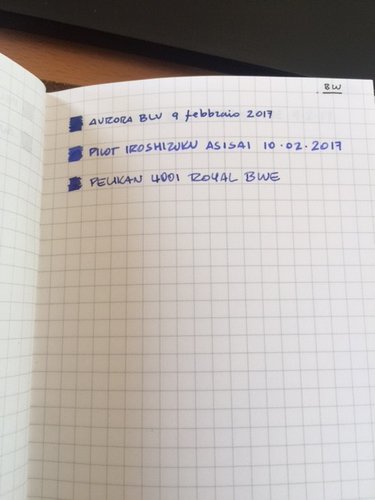 BLU
AURORA BLU 9 febbraio 2017
PILOT IROSHIZUKU ASISAI 10.02.2017
PELIKAN 4001 ROYAL BLUE